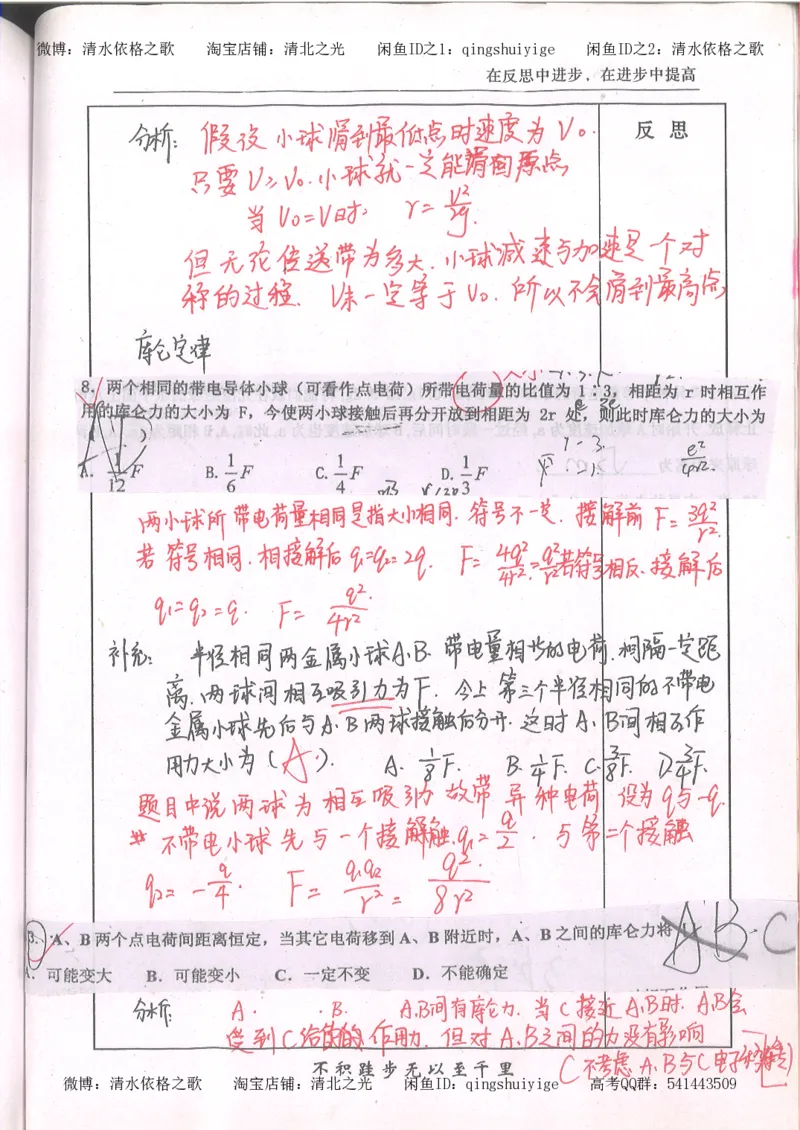 微博：清水依格之歌 淘宝店铺：清北之光 闲鱼ID之1：qingshuiyige 闲鱼ID之2：清水依格之歌
在反思中进步，在进步中提高
反 思
分析：假设小球滑到最低点时速度为V₀.
只要V≥V₀.小球就一定能滑回原点
当V₀=V时， r=V²/2g.
但无论传送带为多大.小球减速与加速是一个对
称的过程. V末一定等于V₀. 所以不会滑到最高点
库仑定律
8．两个相同的带电导体小球（可看作点电荷）所带电荷量的比值为 1：3，相距为 r 时相互作
用的库仑力的大小为 F，今使两小球接触后再分开放到相距为 2r 处，则此时库仑力的大小为
1 : 3
e²/4r².
A. 1/12 F B. 1/6 F C. 1/4 F D. 1/3 F
两小球所带电荷量相同是指大小相同. 符号不一定. 接解前 F=3q²/r².
若符号相同.相接解后 q₁=q₂=2q. F=4q²/4r².=q²/r²若符号相反.接解后
q₁=q₂=q. F=q²/4r².
补充： 半径相同两金属小球A、B. 带电量相等的电荷.相隔一定距
离.两球间相互吸引力为F. 今让第三个半径相同的不带电
金属小球先后与A、B两球接触后分开. 这时A、B间相互作
用力大小为（A）. A. 1/8 F. B. 1/4 F. C. 3/8 F. D. 3/4 F.
题目中说两球为相互吸引力 故带异种电荷 设为q与-q.
不带电小球先与一个接解触.q₁=q/2. 与第二个接触
q₂=-q/4. F=q₁q₂/r²=q²/8r²
3．A、B 两个点电荷间距离恒定，当其它电荷移到 A、B 附近时，A、B 之间的库仑力将 C
A．可能变大 B．可能变小 C．一定不变 D．不能确定
分析： A. .B. A.B间有库仑力. 当C接近A.B时. A.B会
受到C给的作用力. 但对A.B之间的力没有影响
(不考虑A.B与C电子转移)
不积跬步无以至千里
微博：清水依格之歌 淘宝店铺：清北之光 闲鱼ID：qingshuiyige 高考QQ群：541443509